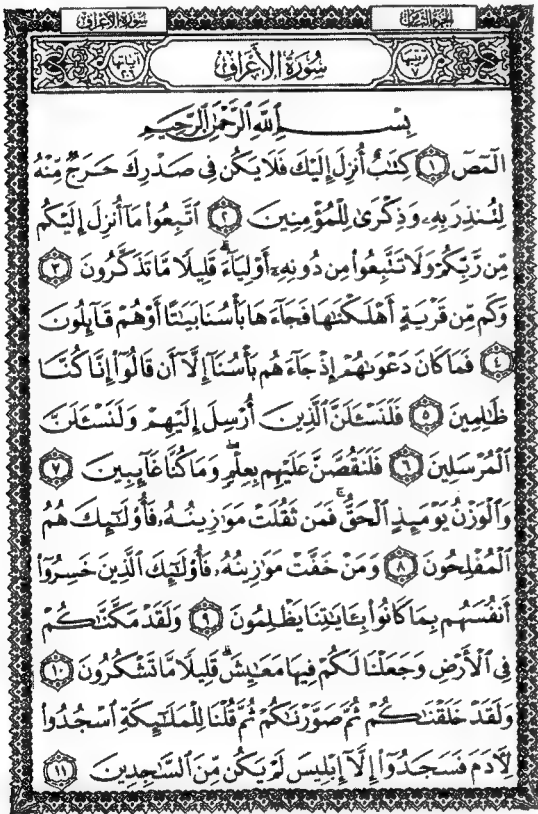 سُورَةُ الأَعْرَافِ الجُزءُ الثَّامِنُ
سُورَةُ الأَعْرَافِ
بِسْمِ ٱللَّهِ ٱلرَّحْمَٰنِ ٱلرَّحِيمِ
الٓمٓصٓ ١ كِتَٰبٌ أُنزِلَ إِلَيْكَ فَلَا يَكُن فِى صَدْرِكَ حَرَجٌ مِّنْهُ
لِتُنذِرَ بِهِۦ وَذِكْرَىٰ لِلْمُؤْمِنِينَ ٢ ٱتَّبِعُوا۟ مَآ أُنزِلَ إِلَيْكُم
مِّن رَّبِّكُمْ وَلَا تَتَّبِعُوا۟ مِن دُونِهِۦٓ أَوْلِيَآءَ ۗ قَلِيلًا مَّا تَذَكَّرُونَ ٣
وَكَم مِّن قَرْيَةٍ أَهْلَكْنَٰهَا فَجَآءَهَا بَأْسُنَا بَيَٰتًا أَوْ هُمْ قَآئِلُونَ
٤ فَمَا كَانَ دَعْوَىٰهُمْ إِذْ جَآءَهُم بَأْسُنَآ إِلَّآ أَن قَالُوٓا۟ إِنَّا كُنَّا
ظَٰلِمِينَ ٥ فَلَنَسْـَٔلَنَّ ٱلَّذِينَ أُرْسِلَ إِلَيْهِمْ وَلَنَسْـَٔلَنَّ
ٱلْمُرْسَلِينَ ٦ فَلَنَقُصَّنَّ عَلَيْهِم بِعِلْمٍ ۖ وَمَا كُنَّا غَآئِبِينَ ٧
وَٱلْوَزْنُ يَوْمَئِذٍ ٱلْحَقُّ ۚ فَمَن ثَقُلَتْ مَوَٰزِينُهُۥ فَأُو۟لَٰٓئِكَ هُمُ
ٱلْمُفْلِحُونَ ٨ وَمَنْ خَفَّتْ مَوَٰزِينُهُۥ فَأُو۟لَٰٓئِكَ ٱلَّذِينَ خَسِرُوٓا۟
أَنفُسَهُم بِمَا كَانُوا۟ بِـَٔايَٰتِنَا يَظْلِمُونَ ٩ وَلَقَدْ مَكَّنَّٰكُمْ
فِى ٱلْأَرْضِ وَجَعَلْنَا لَكُمْ فِيهَا مَعَٰيِشَ ۗ قَلِيلًا مَّا تَشْكُرُونَ ١٠
وَلَقَدْ خَلَقْنَٰكُمْ ثُمَّ صَوَّرْنَٰكُمْ ثُمَّ قُلْنَا لِلْمَلَٰٓئِكَةِ ٱسْجُدُوا۟
لِـَٔادَمَ فَسَجَدُوٓا۟ إِلَّآ إِبْلِيسَ لَمْ يَكُن مِّنَ ٱلسَّٰجِدِينَ ١١